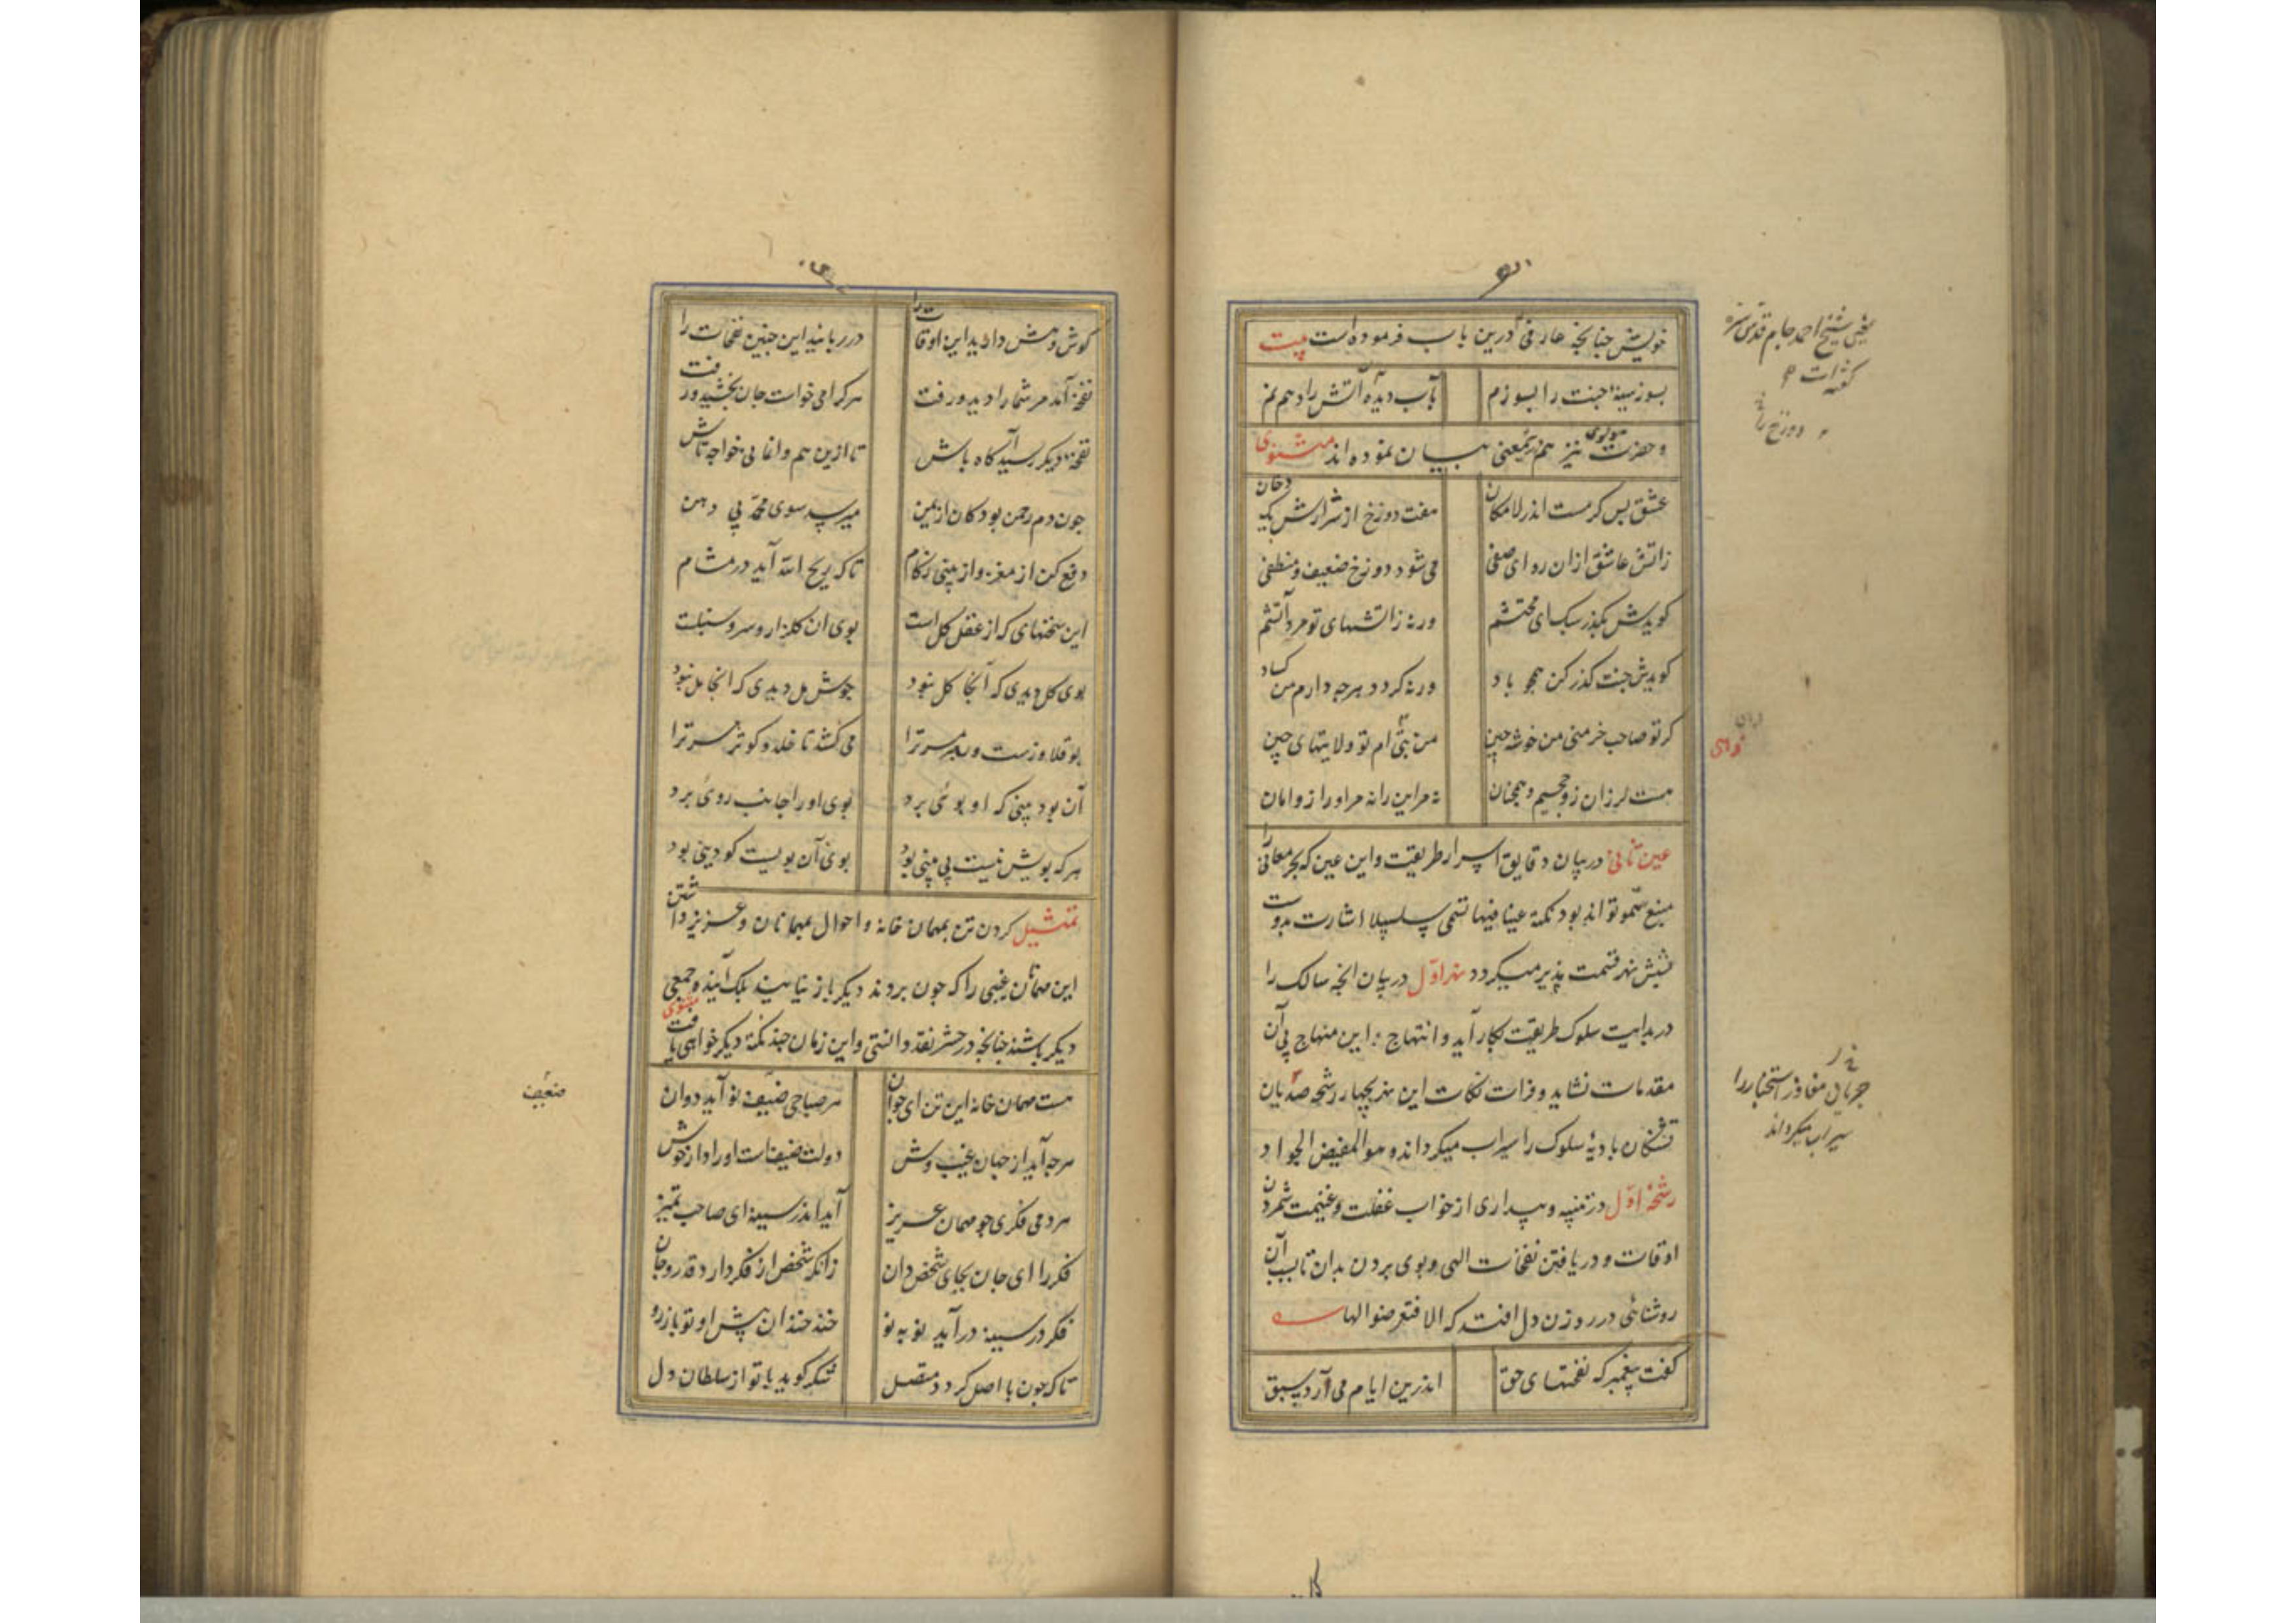 خویش چنانچه عارفی درین باب فرموده است بیت
بسوز سینه جنت را بسوزم بآب دیده آتش را دهم نم
و حضرت مولوی نیز هم برین معنی بیان نموده‌اند مثنوی
عشق بس گرمست اندر لامکان هفت دوزخ از شرارش یک دخان
زاتش عاشق ازان رو ای صفی می شود دوزخ ضعیف و منطفی
گویدش بگذر سبک ای محتشم ورنه زاتشهای تو مرد آتشم
گویدش جنت گذر کن همچو باد ورنه گردد هرچه دارم من کساد
گر تو صاحب خرمنی من خوشه چین من بتی ام تو ولایتهای چین
هست لرزان زو جحیم و هم جنان نه مر این را نه مر او را زو امان
عین ثانی در بیان دقایق اسرار طریقت و این عین که بحر معانی را
منبع سمو تواند بود نکته عینا فیها تسمی سلسبیلا اشارت بدوست
بشش نهر قسمت پذیر میگردد نهر اول در بیان آنچه سالک را
در بدایت سلوک طریقت بکار آید و انتهاج این منهاج بی آن
مقدمات نشاید و فرات نکات این نهر بچهار رشحه صدیان
تشنگان بادیهٔ سلوک را سیراب میگرداند و هو المفیض الجواد
رشحهٔ اول در تنبیه و بیداری از خواب غفلت و غنیمت شمردن
اوقات و دریافتن نفحات الهی و بوی بردن بدان تا بسبب آن
روشنائی در روزن دل افتد که الا فتعرضوا لها
گفت پیغمبر که نفحتهای حق اندرین ایام می آرد سبق
یعنی شیخ احمد جام قدس سره
گفته است
دوزخ را
سیراب میگرداند
گوش و هش دارید این اوقات را در ربایید این چنین نفحات را
نفحه آمد مر شما را دید و رفت هر کرا می خواست جان بخشید و رفت
نفحهٔ دیگر رسید آگاه باش تا ازین هم وانمانی خواجه تاش
چون دم رحمن بود کان از یمن میرسد سوی محمد بی دهن
دفع کن از مغز و از بینی زکام تا که ریح الله آید در مشام
این سخنهای که از عقل کل است بوی ان گلزار و سرو و سنبلست
بوی گل دیدی که آنجا گل نبود جوش مل دیدی که انجا مل نبود
بو قلاوزست و رهبر مر ترا می کشد تا خلد و کوثر مر ترا
آن بود بینی که او بوئی برد بوی او را جانب روئی برد
هر که بویش نیست بی بینی بود بوی آن بویست کو دینی بود
تمثیل کردن تن بمهمان خانه و احوال میهمانان و عزیز داشتن
این مهمانان غیبی را که چون بروند دیگر باز نیایند بلک آینده جمعی
دیگر باشند چنانچه در حشر نقد دانستی و این زمان چند نکتهٔ دیگر خواهی یافت مثنوی
هست مهمان خانه این تن ای جوان هر صباحی ضیف نو آید دوان
هرچه آید از جهان غیب وش در دلت ضیفست او را دار خوش
هر دمی فکری چو مهمان عزیز آید اندر سینه ای صاحب تمیز
فکر را ای جان بجای شخص دان زانکه شخص از فکر دارد قدر و جان
فکر در سینه درآید نو به نو خند خندان پیش او تو باز رو
تا که چون با اصل گردد متصل شکر گوید با تو از سلطان دل
ضیف